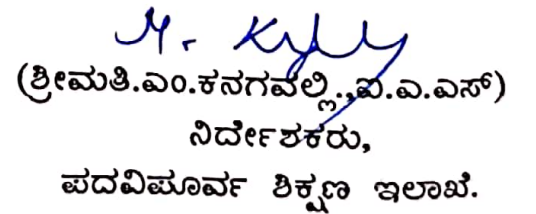 (ಶ್ರೀಮತಿ.ಎಂ.ಕನಗವಲ್ಲಿ.,ಐ.ಎ.ಎಸ್)
ನಿರ್ದೇಶಕರು,
ಪದವಿಪೂರ್ವ ಶಿಕ್ಷಣ ಇಲಾಖೆ.